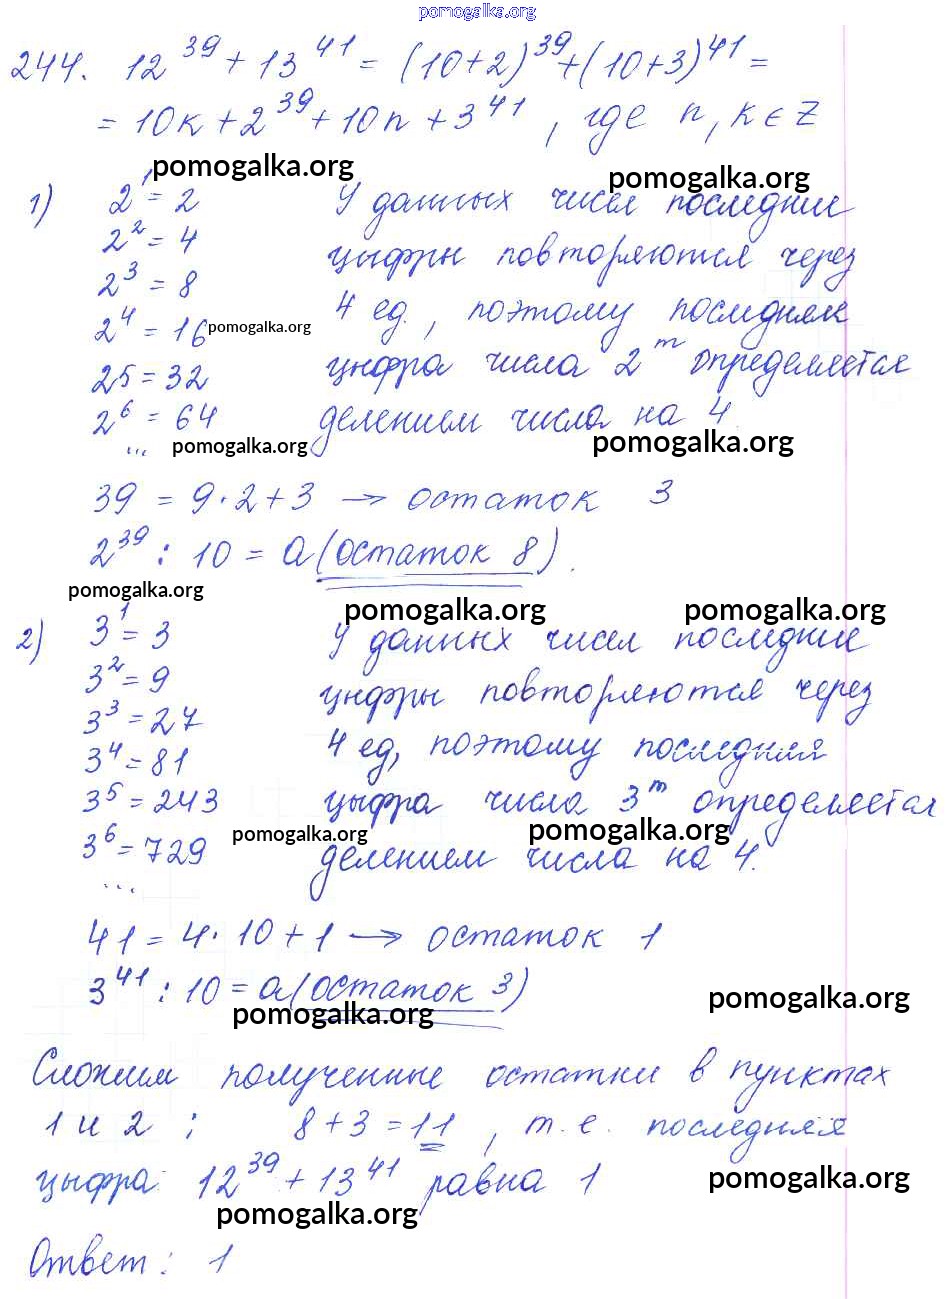 pomogalka.org
244. 12^39 + 13^41 = (10+2)^39 + (10+3)^41 =
= 10k + 2^39 + 10n + 3^41, где n, k ∈ Z
pomogalka.org pomogalka.org
1) 2^1 = 2 У данных чисел последние
2^2 = 4 цыфры повторяются через
2^3 = 8
2^4 = 16 4 ед., поэтому последняя
pomogalka.org
2^5 = 32 цыфра числа 2^m определяется
2^6 = 64 делением числа на 4
... pomogalka.org pomogalka.org
39 = 9·2+3 → остаток 3
2^39 : 10 = a (остаток 8).
pomogalka.org pomogalka.org pomogalka.org
2) 3^1 = 3 У данных чисел последние
3^2 = 9 цыфры повторяются через
3^3 = 27
3^4 = 81 4 ед, поэтому последняя
3^5 = 243 цыфра числа 3^m определяется
pomogalka.org pomogalka.org
3^6 = 729 делением числа на 4.
...
41 = 4·10+1 → остаток 1
3^41 : 10 = a (остаток 3)
pomogalka.org pomogalka.org
Сложим полученные остатки в пунктах
1 и 2; 8+3=11, т.е. последняя
цыфра 12^39 + 13^41 равна 1
pomogalka.org
pomogalka.org
Ответ: 1